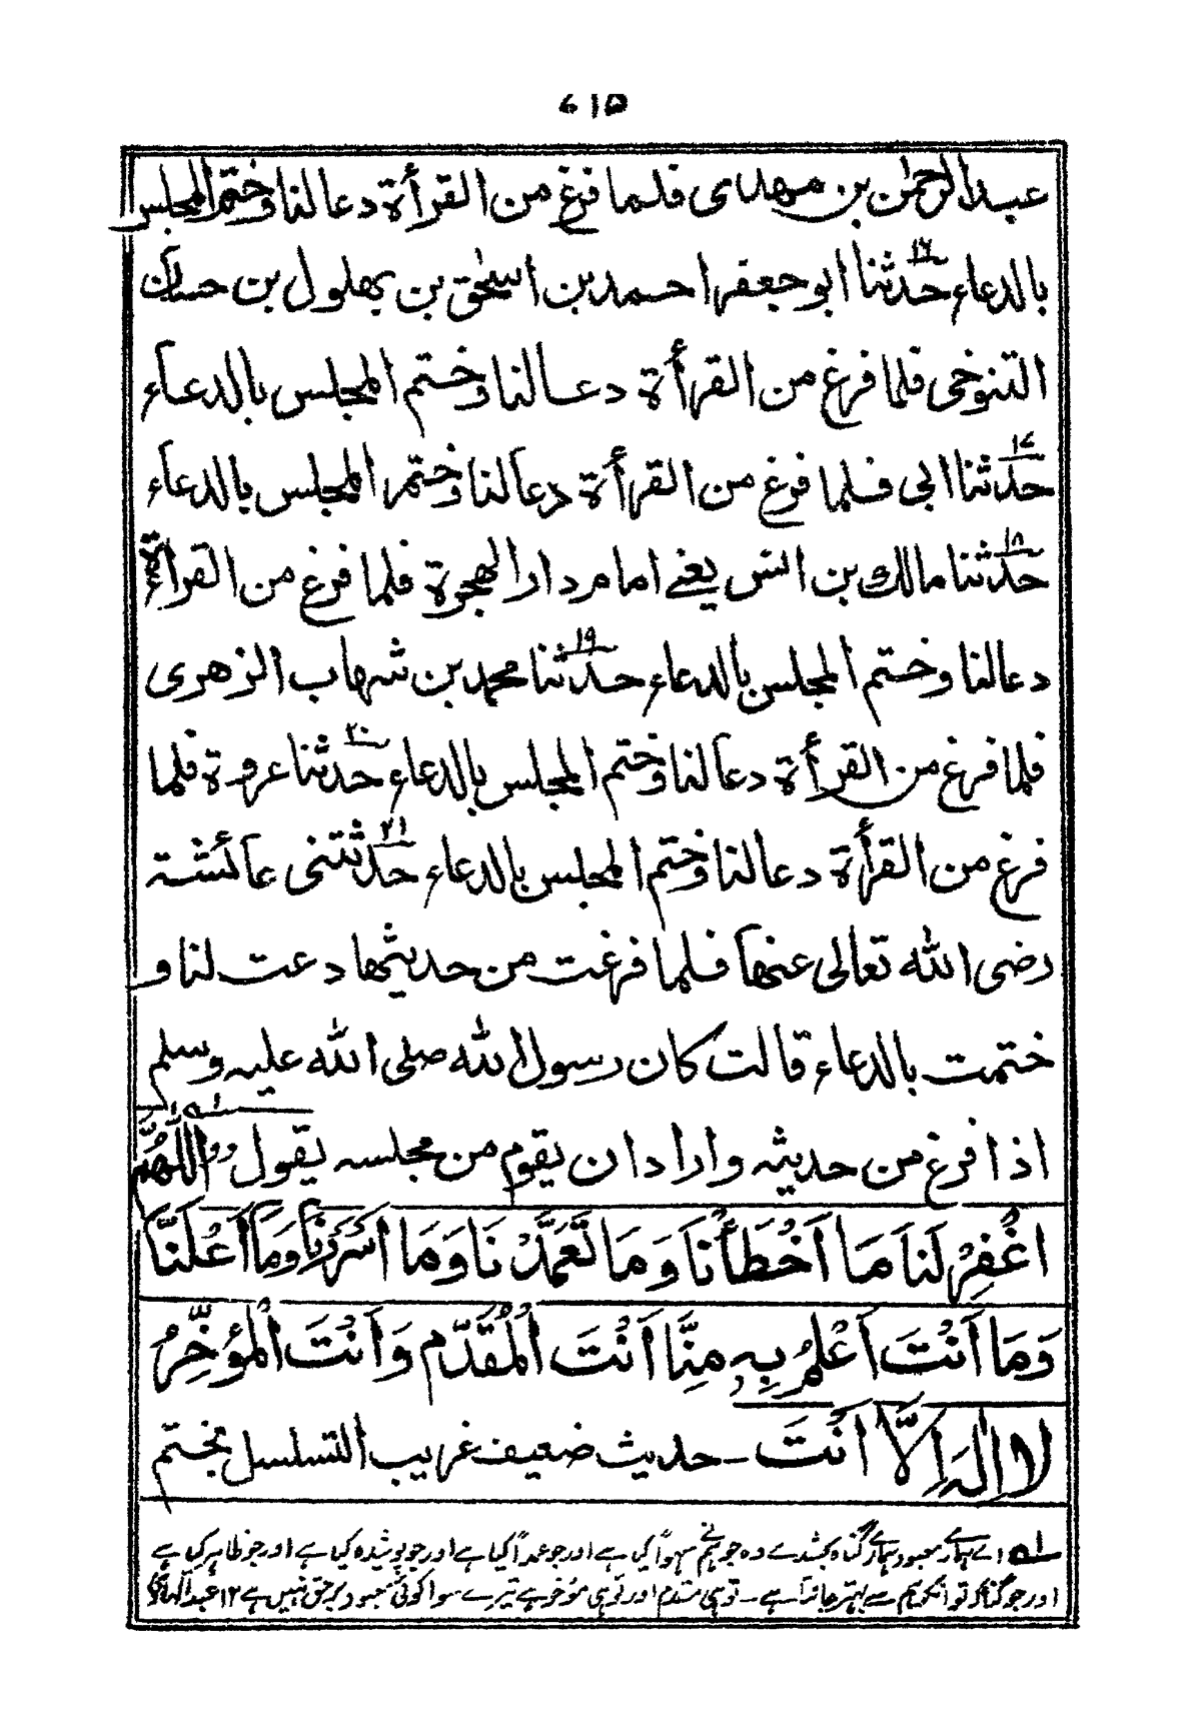 ۷۱۵
عبدالرحمٰن بن مهدى فلما فرغ من القرأة دعا لنا وختم المجلس
بالدعاء حدثنا ۱۶ ابو جعفر احمد بن اسحٰق بن بهلول بن حسان
التنوخى فلما فرغ من القرأة دعا لنا وختم المجلس بالدعاء
حدثنا ۱۷ ابى فلما فرغ من القرأة دعا لنا وختم المجلس بالدعاء
حدثنا ۱۸ مالك بن انس يعنے امام دار الهجرة فلما فرغ من القرأة
دعا لنا وختم المجلس بالدعاء حدثنا ۱۹ محمد بن شهاب الزهرى
فلما فرغ من القرأة دعا لنا وختم المجلس بالدعاء حدثنا ۲۰ عروة فلما
فرغ من القرأة دعا لنا وختم المجلس بالدعاء حدثتنى ۲۱ عائشة
رضى الله تعالى عنها فلما فرغت من حديثها دعت لنا و
ختمت بالدعاء قالت كان رسول الله صلى الله عليه وسلم
اذا فرغ من حديثه واراد ان يقوم من مجلسه يقول ”اللّٰهُمَّ ۱ه
اغْفِرْ لَنَا مَا اَخْطَأْنَا وَمَا تَعَمَّدْنَا وَمَا اَسْرَرْنَا وَمَا اَعْلَنَّا
وَمَا اَنْتَ اَعْلَمُ بِهٖ مِنَّا اَنْتَ الْمُقَدِّم وَاَنْتَ الْمُؤَخِّرُ
لا اِلٰهَ اِلَّا اَنْتَ - حديث ضعيف غريب التسلسل بختم
۱ه اے ہمارے معبود ہمارے گناہ بخشدے وہ جو ہم نے سہواً کیا ہے اور جو عمداً کیا ہے اور جو پوشیدہ کیا ہے اور جو ظاہر کیا ہے
اور جو گناہ کہ تو انکو ہم سے بہتر جانتا ہے - تو ہی مقدم اور تو ہی مؤخر ہے تیرے سوا کوئی معبود برحق نہیں ہے ۱۲